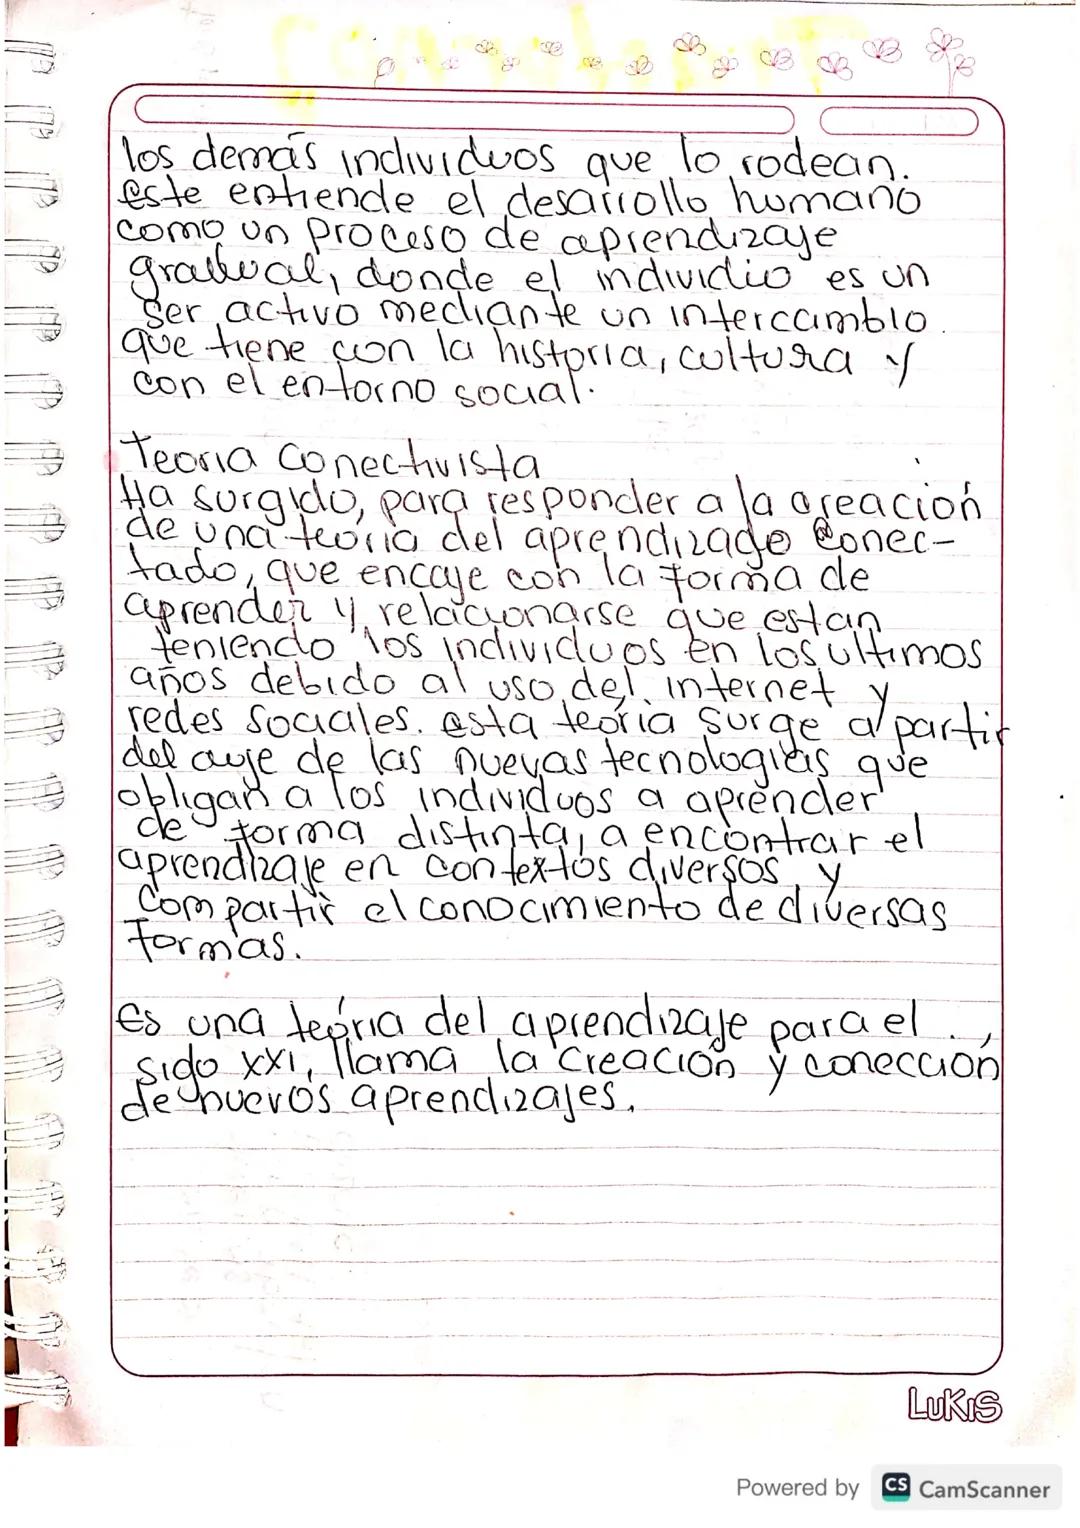 los demás individuos que lo rodean.
este entiende el desarrollo humano
como un proceso de aprendizaje
gradual, donde el individio es un
ser activo mediante un intercambio.
que tiene con la historia, cultura y
con el entorno social.
Teoria Conectivista
Ha surgido, para responder a la creación
de una teoria del aprendizage Conec-
tado, que encaje con la forma de
aprender y relacionarse que estan
teniendo los individuos en los ultimos
años debido al uso del internet y
redes sociales. esta teoria surge a partir
del auje de las nuevas tecnologias que
obligan a los individuos a aprender
de forma distinta, a encontrar el
aprendizaje en contextos diversos y
compartir el conocimiento de diversas
formas.
Es una teoria del aprendizaje para el
siglo XXI, llama la creación y conección
de nuevos aprendizajes.
LUKIS
Powered by CS CamScanner